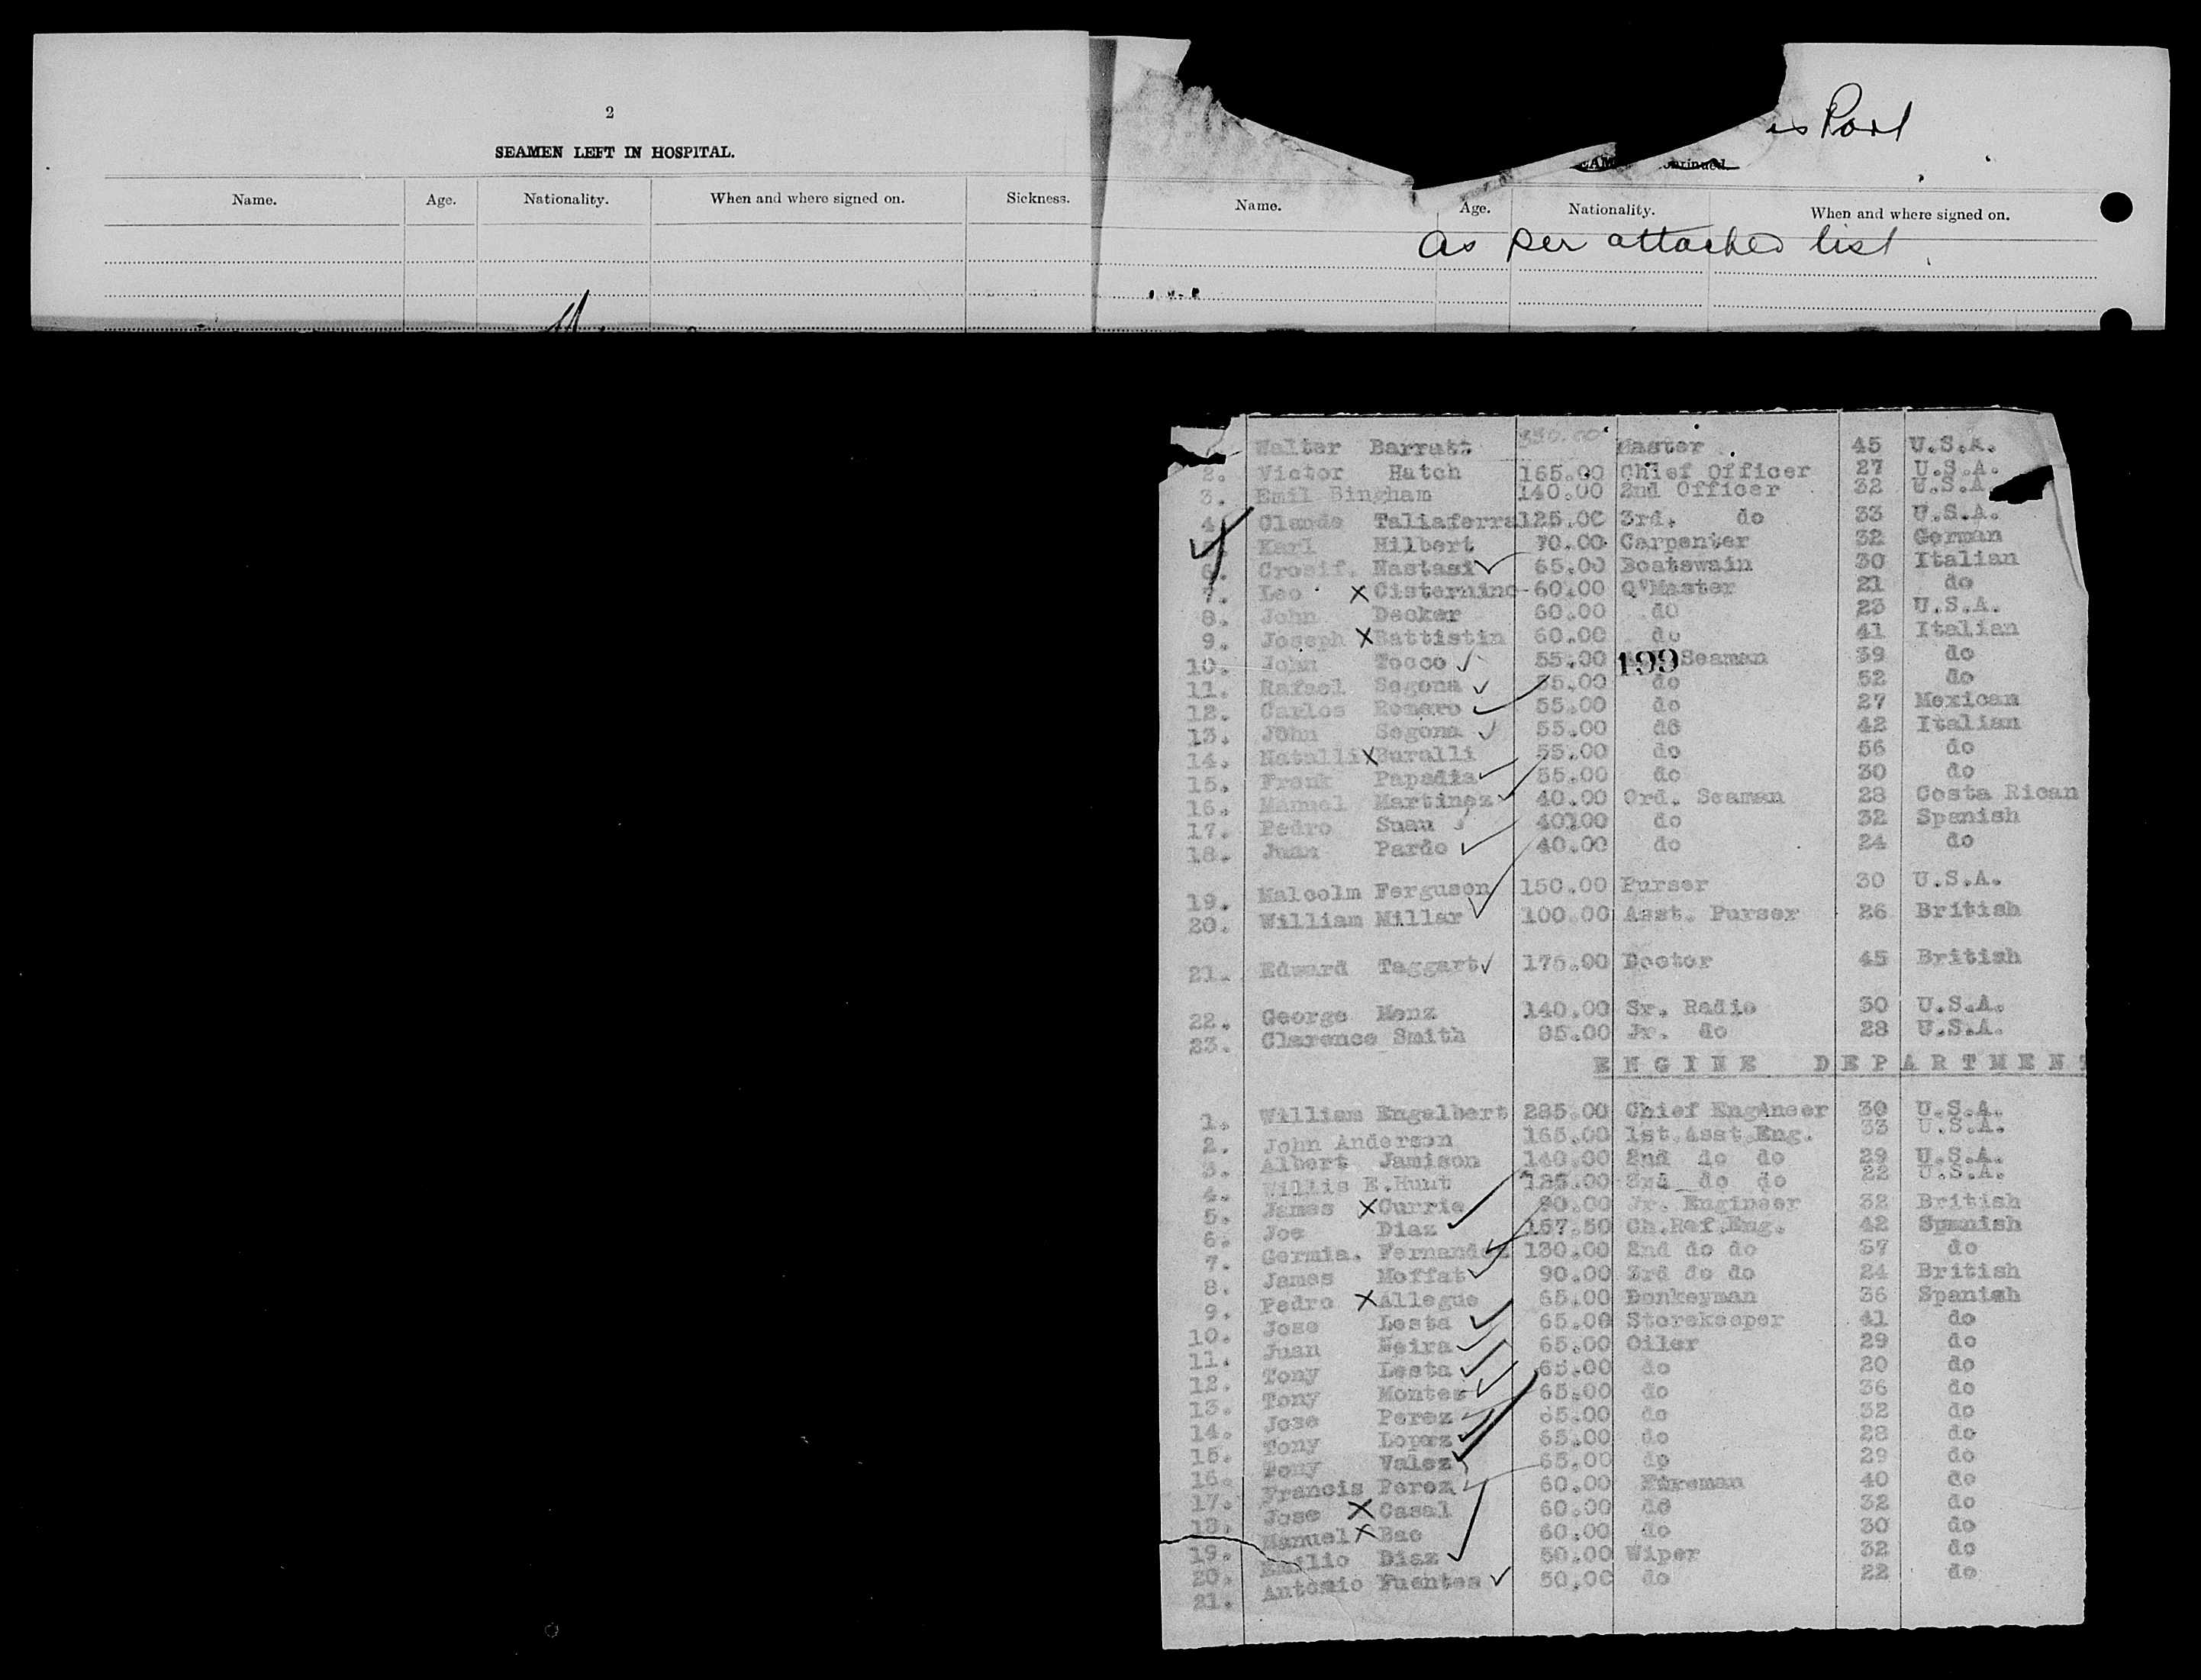 2
SEAMEN LEFT IN HOSPITAL.
Name. Age. Nationality. When and where signed on. Sickness.
is Port
Name. Age. Nationality. When and where signed on.
as per attached list
Walter Barratt 350.00 Master 45 U.S.A.
2. Victor Hatch 165.00 Chief Officer 27 U.S.A.
3. Emil Bingham 140.00 2nd Officer 32 U.S.A
4. Claude Taliaferra 125.00 3rd. do 33 U.S.A.
Karl Hilbert 70.00 Carpenter 32 German
6. Crosif. Nastasi 65.00 Boatswain 30 Italian
7. Leo Cisternino 60.00 Q'Master 21 do
8. John Decker 60.00 do 23 U.S.A.
9. Joseph Battistin 60.00 do 41 Italian
10. John Tocco 55.00 199 Seaman 39 do
11. Rafael Segona 55.00 do 52 do
12. Carlos Romero 55.00 do 27 Mexican
13. John Segona 55.00 do 42 Italian
14. Natalli Buralli 55.00 do 56 do
15. Frank Papadia 55.00 do 30 do
16. Manuel Martinez 40.00 Ord. Seaman 28 Costa Rican
17. Pedro Suau 40100 do 32 Spanish
18. Juan Pardo 40.00 do 24 do
19. Malcolm Ferguson 150.00 Purser 30 U.S.A.
20. William Millar 100.00 Asst. Purser 26 British
21. Edward Taggart 175.00 Doctor 45 British
22. George Menz 140.00 Sr. Radio 30 U.S.A.
23. Clarence Smith 85.00 Jr. do 28 U.S.A.
ENGINE DEPARTMENT
1. William Engelbert 285.00 Chief Engineer 30 U.S.A.
2. John Anderson 165.00 1st.Asst.Eng. 33 U.S.A.
3. Albert Jamison 140.00 2nd do do 29 U.S.A.
4. Willis E.Hunt 125.00 3rd do do 22 U.S.A.
5. James Currie 90.00 Jr. Engineer 32 British
6. Joe Diaz 157.50 Ch.Ref.Eng. 42 Spanish
7. Germia. Fernandez 130.00 2nd do do 37 do
8. James Moffat 90.00 3rd do do 24 British
9. Pedro Allegue 65.00 Donkeyman 36 Spanish
10. Jose Lesta 65.00 Storekeeper 41 do
11. Juan Neira 65.00 Oiler 29 do
12. Tony Lesta 65.00 do 20 do
13. Tony Montes 65.00 do 36 do
14. Jose Perez 65.00 do 32 do
15. Tony Lopez 65.00 do 28 do
16. Tony Valez 65.00 do 29 do
17. Francis Perez 60.00 Fireman 40 do
18. Jose Casal 60.00 do 32 do
19. Manuel Bao 60.00 do 30 do
20. Emilio Diaz 50.00 Wiper 32 do
21. Antonio Fuentes 50.00 do 22 do